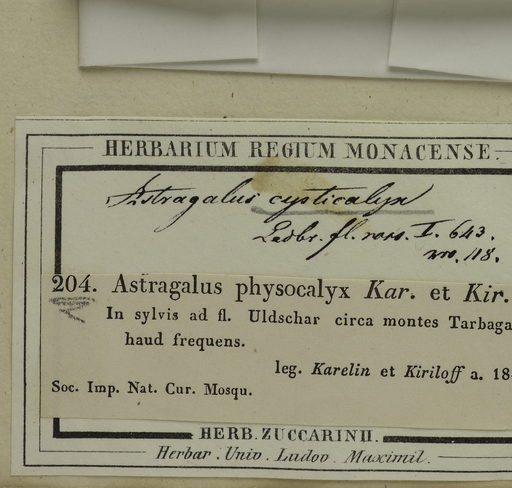 HERBARIUM REGIUM MONACENSE.
Astragalus cysticalyx
Ledbr. fl. ross. I. 643.
no. 118.
204. Astragalus physocalyx Kar. et Kir.
In sylvis ad fl. Uldschar circa montes Tarbaga
haud frequens.
leg. Karelin et Kiriloff a. 18
Soc. Imp. Nat. Cur. Mosqu.
HERB. ZUCCARINII.
Herbar. Univ. Ludov. Maximil.